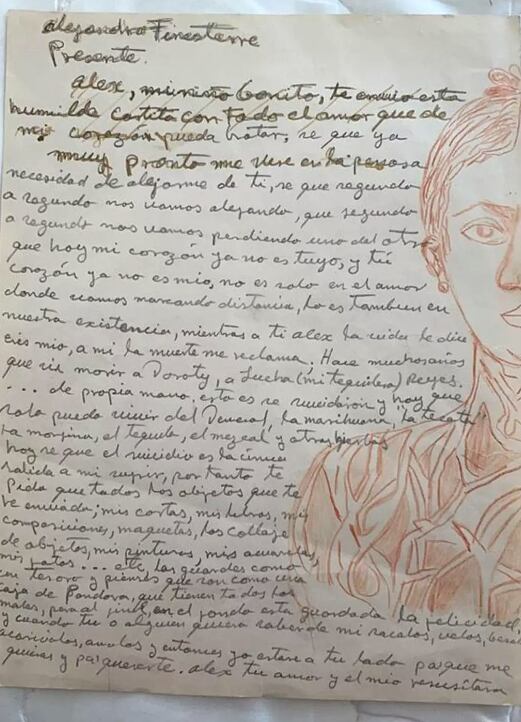 Alejandro Finesterre
Presente.
Alex, mi niño bonito, te envio esta
humilde cartita con todo el amor que de
mi corazón pueda brotar, se que ya
muy pronto me vere en la penosa
necesidad de alejarme de ti, se que segundo
a segundo nos vamos alejando, que segundo
a segundo nos vamos perdiendo uno del otro
que hoy mi corazón ya no es tuyo, y tú
corazón ya no es mio, no es solo en el amor
donde vamos marcando distancia, lo es tambien en
nuestra existencia, mientras a ti alex la vida te dice
eres mio, a mi la muerte me reclama. Hace muchos años
que vi morir a Doroty, a Lucha (mi tequilera) Reyes.
... de propia mano, esto es se suicidaron y hoy que
solo puedo vivir del Demerol, la marihuana, "la tecata"
la morfina, el tequila, el mezcal y otras hierbas
hoy se que el suicidio es la única
salida a mi sufrir, por tanto te
pido que todos los objetos que te
he enviado; mis cartas, mis letras, mis
composiciones, maquetas, los collage
de objetos, mis pinturas, mis acuarelas,
mis fotos... etc, las guardes como
un tesoro y pienses que son como una
caja de Pandora, que tienen todos los
males, pero al final, en el fondo esta guardada la felicidad,
y cuando tu o alguien quiera saber de mi sacalos, velos, besalos
acaricialos, amalos y entonces yo estare a tu lado pa que me
quieras y pa quererte. Alex tu amor y el mio resusitara